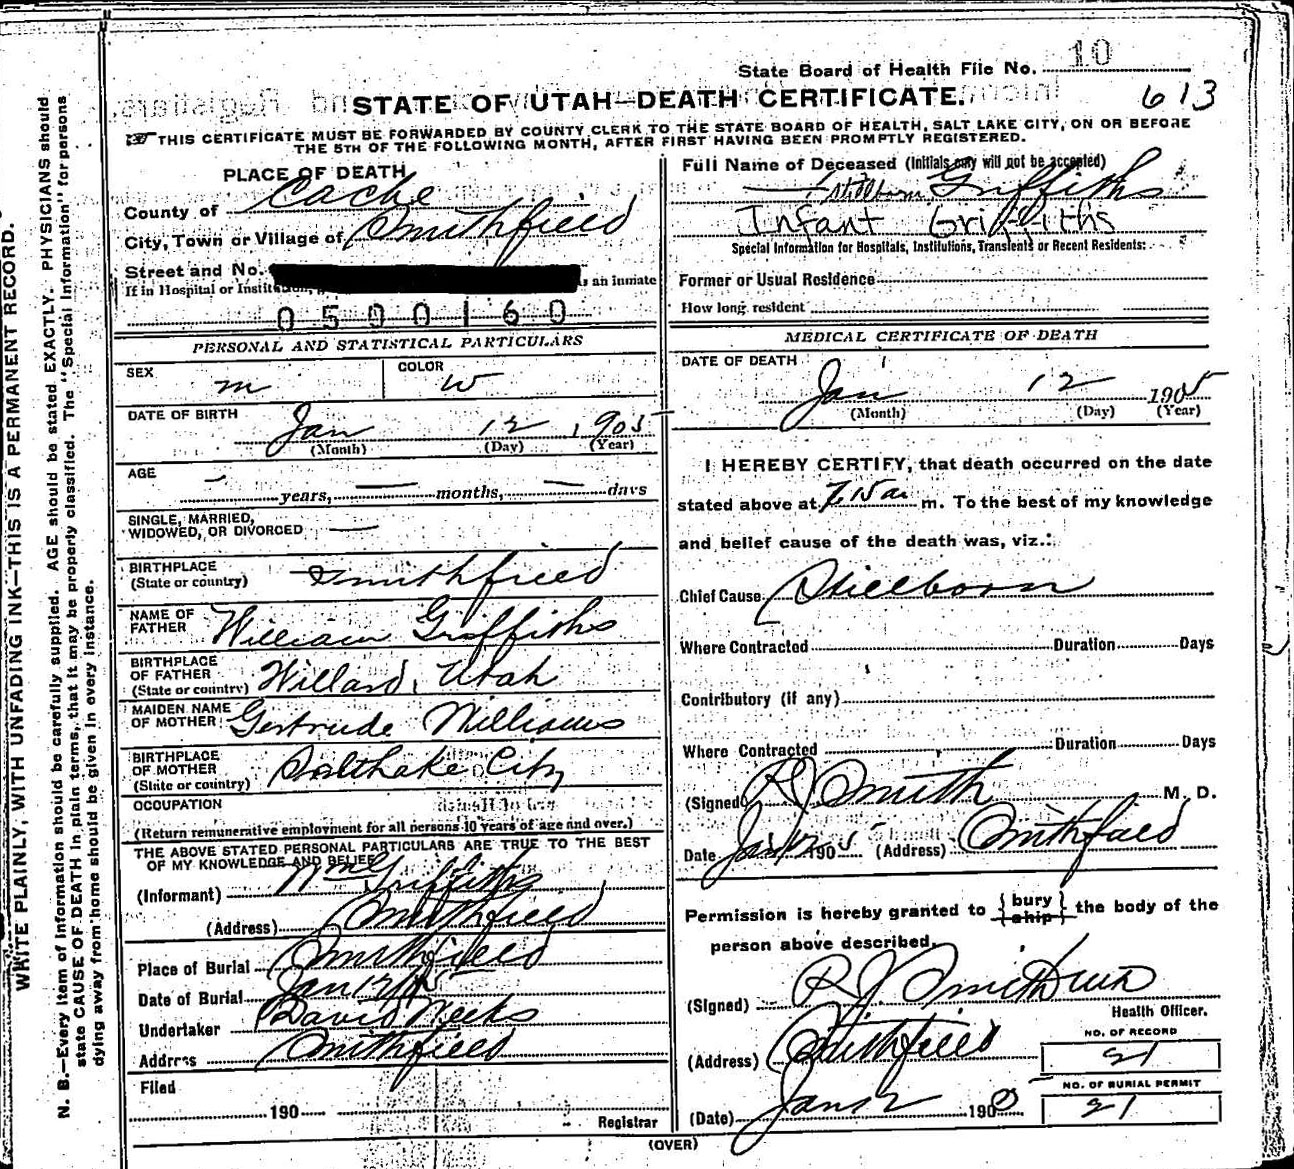 State Board of Health File No. 10
STATE OF UTAH—DEATH CERTIFICATE.
613
THIS CERTIFICATE MUST BE FORWARDED BY COUNTY CLERK TO THE STATE BOARD OF HEALTH, SALT LAKE CITY, ON OR BEFORE
THE 5TH OF THE FOLLOWING MONTH, AFTER FIRST HAVING BEEN PROMPTLY REGISTERED.
PLACE OF DEATH
County of Cache
City, Town or Village of Smithfield
Street and No.
If in Hospital or an inmate
0500160
PERSONAL AND STATISTICAL PARTICULARS
SEX m
COLOR W
DATE OF BIRTH
Jan 12 1905
(Month) (Day) (Year)
AGE
— years, — months, — days
SINGLE, MARRIED,
WIDOWED, OR DIVORCED —
BIRTHPLACE
(State or country) Smithfield
NAME OF
FATHER William Griffiths
BIRTHPLACE
OF FATHER
(State or country) Willard, Utah
MAIDEN NAME
OF MOTHER Gertrude Williams
BIRTHPLACE
OF MOTHER
(State or country) Salt Lake City
OCCUPATION
(Return remunerative employment for all persons 10 years of age and over.)
THE ABOVE STATED PERSONAL PARTICULARS ARE TRUE TO THE BEST
OF MY KNOWLEDGE AND BELIEF
(Informant) Wm Griffiths
(Address) Smithfield
Place of Burial Smithfield
Date of Burial Jan 12
Undertaker David Weeks
Address Smithfield
Filed
190
Registrar
Full Name of Deceased (Initials only will not be accepted)
Stillborn Griffiths
Infant Griffiths
Special Information for Hospitals, Institutions, Transients or Recent Residents:
Former or Usual Residence
How long resident
MEDICAL CERTIFICATE OF DEATH
DATE OF DEATH
Jan 12 1905
(Month) (Day) (Year)
I HEREBY CERTIFY, that death occurred on the date
stated above at 7.15 a m. To the best of my knowledge
and belief cause of the death was, viz.:
Chief Cause Stillborn
Where Contracted Duration Days
Contributory (if any)
Where Contracted Duration Days
(Signed) R J Smith M. D.
Date Jan 12 1905 (Address) Smithfield
Permission is hereby granted to { bury ship } the body of the
person above described.
(Signed) R J Smith
Health Officer.
(Address) Smithfield
NO. OF RECORD
21
NO. OF BURIAL PERMIT
21
(Date) Jan 12 1905
(OVER)
WRITE PLAINLY, WITH UNFADING INK—THIS IS A PERMANENT RECORD.
N. B.—Every item of information should be carefully supplied. AGE should be stated EXACTLY. PHYSICIANS should
state CAUSE OF DEATH in plain terms, that it may be properly classified. The "Special Information" for persons
dying away from home should be given in every instance.